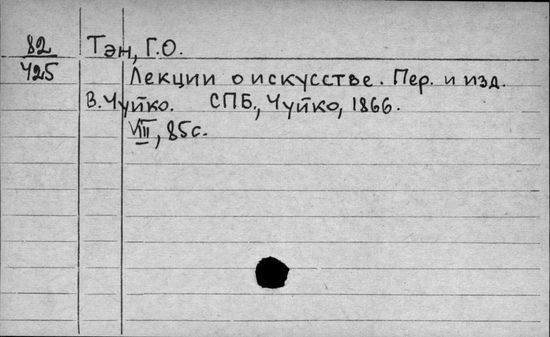 82 Тэн, Г.О.
Ч25 Лекции о искусстве. Пер. и изд.
В. Чуйко. СПБ., Чуйко, 1866.
VIII, 85с.